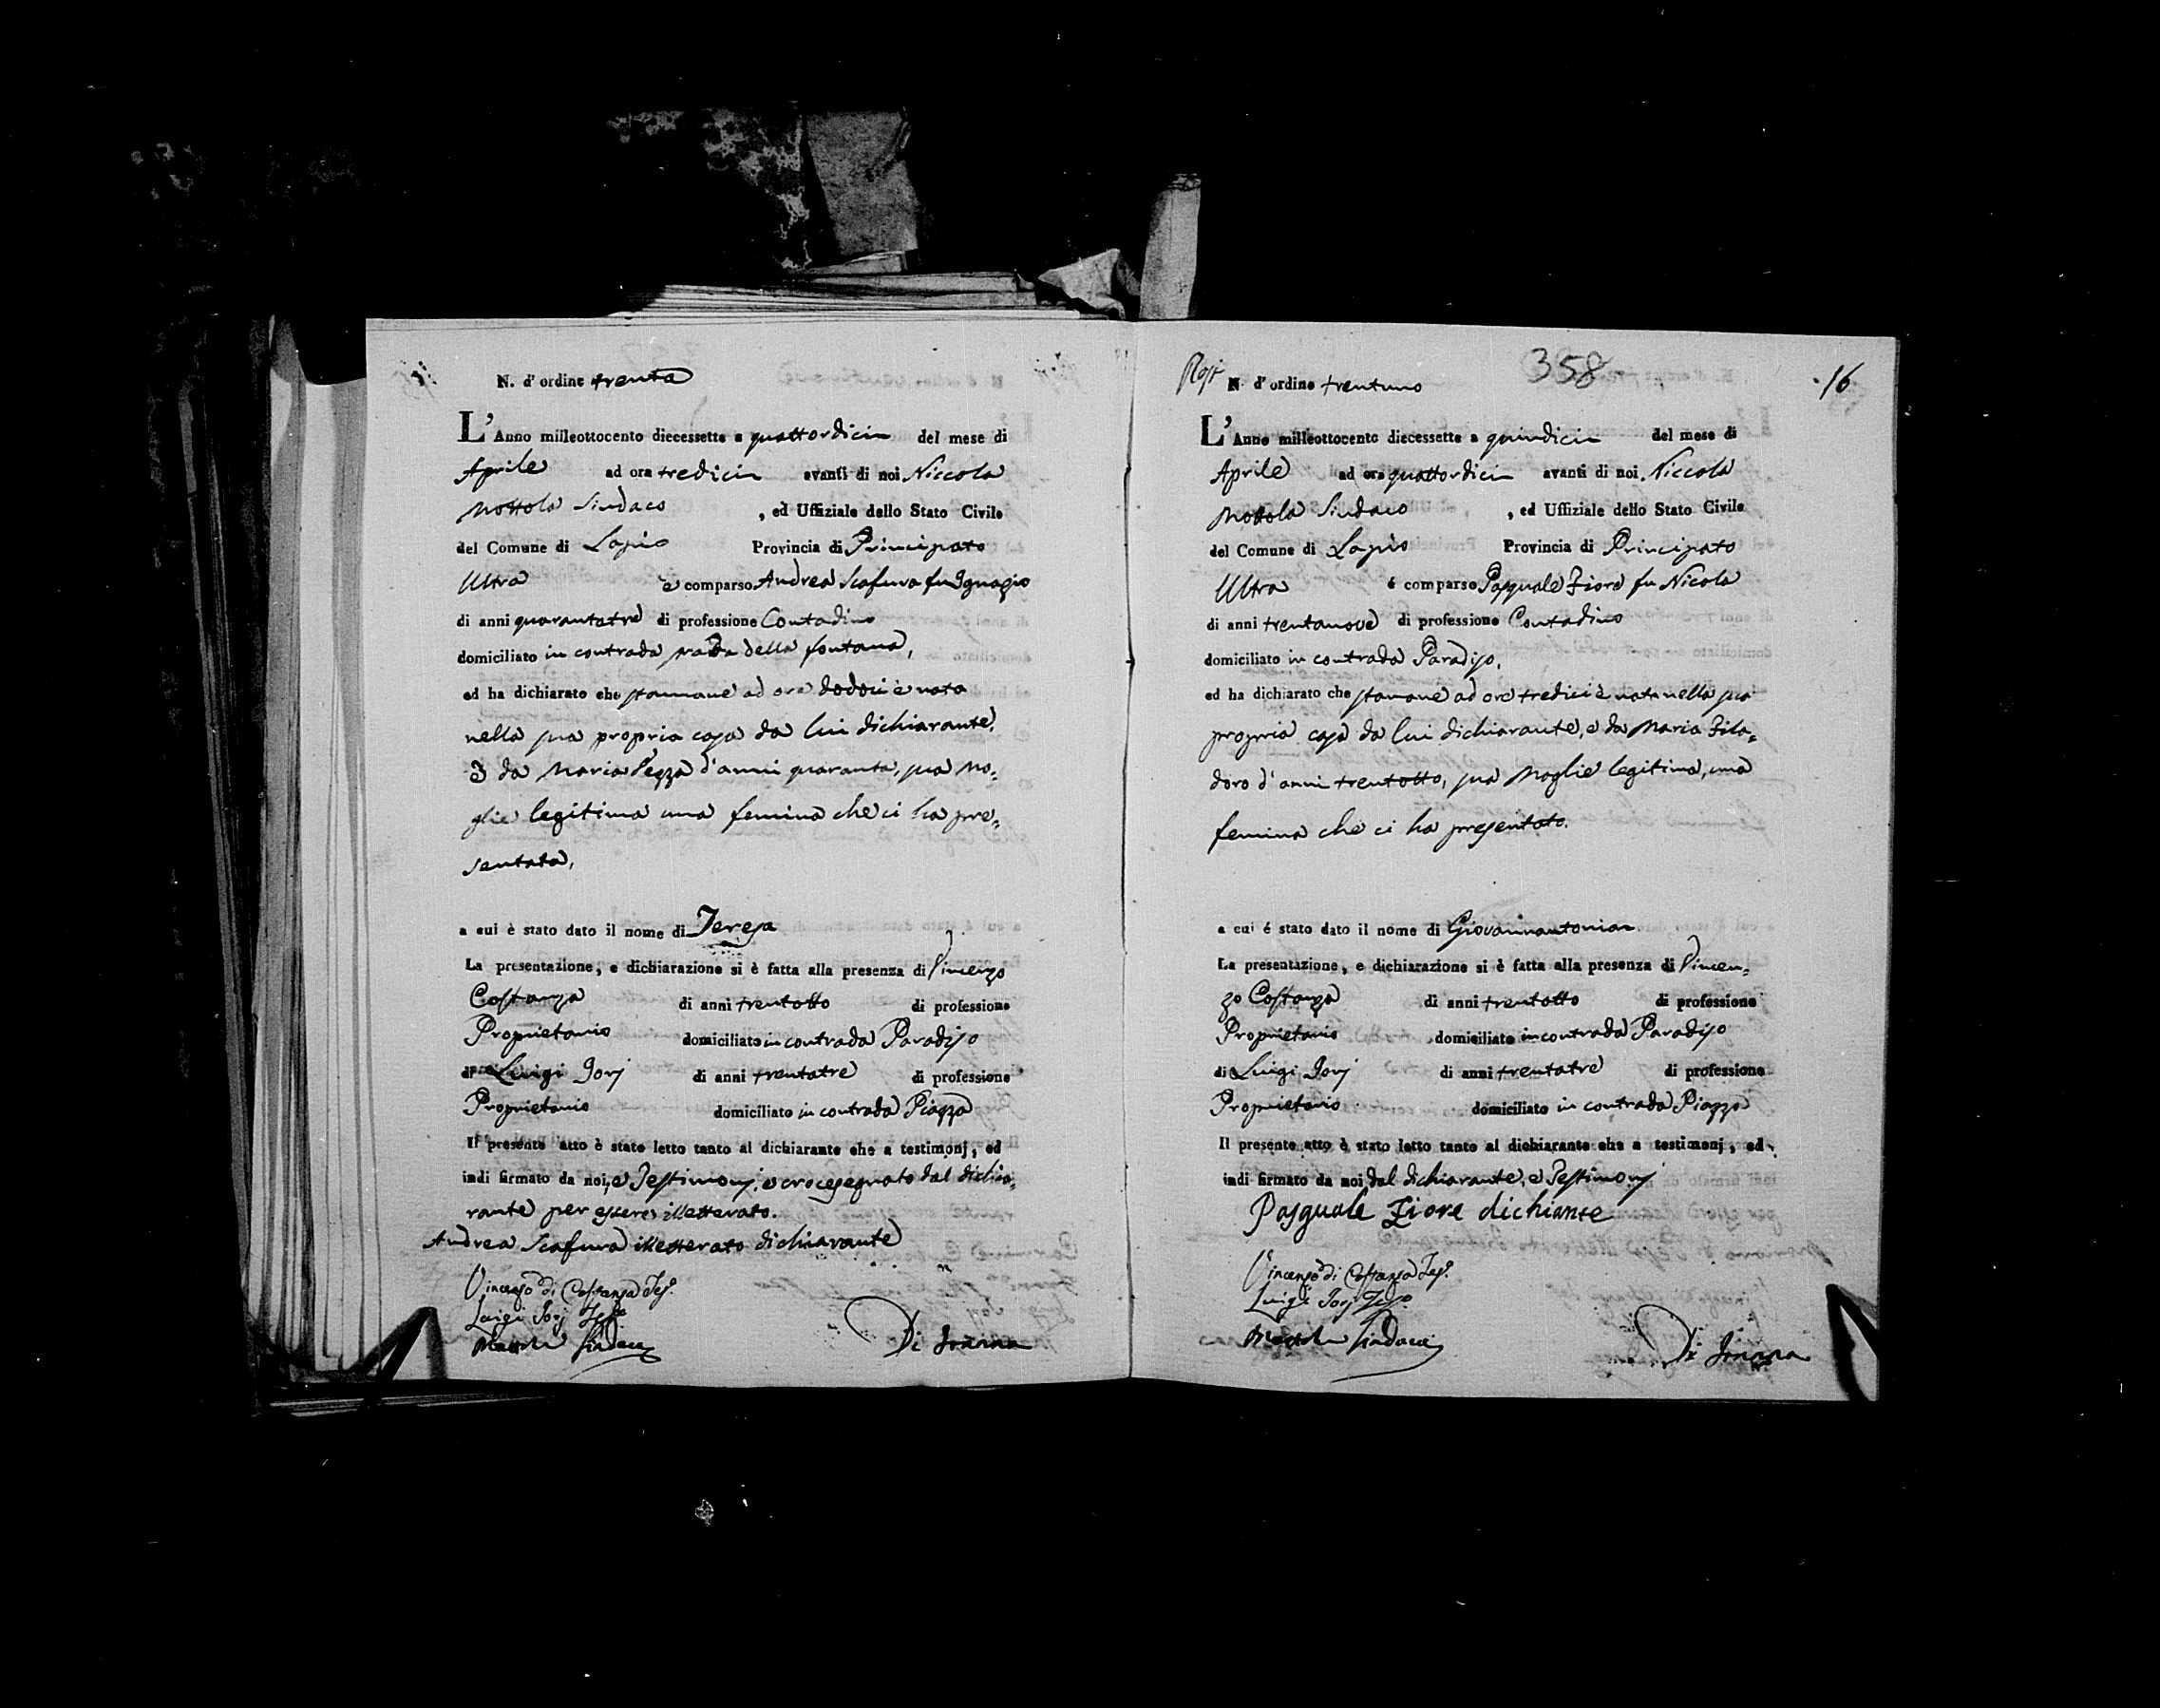 N. d' ordine trenta
L'Anno milleottocento diecessette a quattordici del mese di
Aprile ad ora tredici avanti di noi Niccola
Mottola Sindaco , ed Uffiziale dello Stato Civile
del Comune di Lapio Provincia di Principato
Ultra è comparso Andrea Scafura fu Ignazio
di anni quarantatre di professione Contadino
domiciliato in contrada della fontana,
ed ha dichiarato che stammane ad ore dodoci è nata
nella sua propria casa da lui dichiarante,
e da Maria Pezza d'anni quaranta, sua Mo=
glie legitima una femina che ci ha pre=
sentata,
a cui è stato dato il nome di Teresa
La presentazione, e dichiarazione si è fatta alla presenza di Vincenzo
Costanza di anni trentotto di professione
Proprietario domiciliato in contrada Paradiso
di Luigi Jorj di anni trentatre di professione
Proprietario domiciliato in contrada Piazza
Il presente atto è stato letto tanto al dichiarante che a testimonj, ed
indi firmato da noi, e Testimonj, e crocesegnato dal dichia=
rante per essere illetterato.
Andrea Scafura illetterato dichiarante
Vincenzo di Costanza Tes.º
Luigi Jorj Tes.º
Mottola Sindaco Di
358
16
N. d' ordine trentuno
L'Anno milleottocento diecessette a quindici del mese di
Aprile ad ora quattordici avanti di noi Niccola
Mottola Sindaco , ed Uffiziale dello Stato Civile
del Comune di Lapio Provincia di Principato
Ultra é comparso Pasquale Fiore fu Nicola
di anni trentanove di professione Contadino
domiciliato in contrada Paradiso,
ed ha dichiarato che stamane ad ore tredici è nata nella sua
propria casa da lui dichiarante, e da Maria Fila=
doro d'anni trentotto, sua Moglie legitima, una
femina che ci ha presentato.
a cui é stato dato il nome di Giovannantonia
La presentazione, e dichiarazione si è fatta alla presenza di Vincen=
zo Costanza di anni trentotto di professione
Proprietario domiciliato in contrada Paradiso
di Luigi Jorj di anni trentatre di professione
Proprietario domiciliato in contrada Piazza
Il presente atto è stato letto tanto al dichiarante che a testimonj, ed
indi firmato da noi, dal dichiarante, e Testimonj
Pasquale Fiore dichiante
Vincenzo di Costanza Tes.º
Luigi Jorj Tes.º
Mottola Sindaco Di